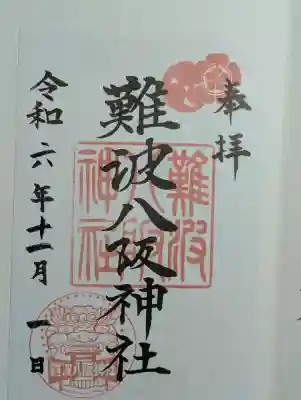 奉拝
難波八阪神社
難波
八阪
神社
令和六年十一月一日